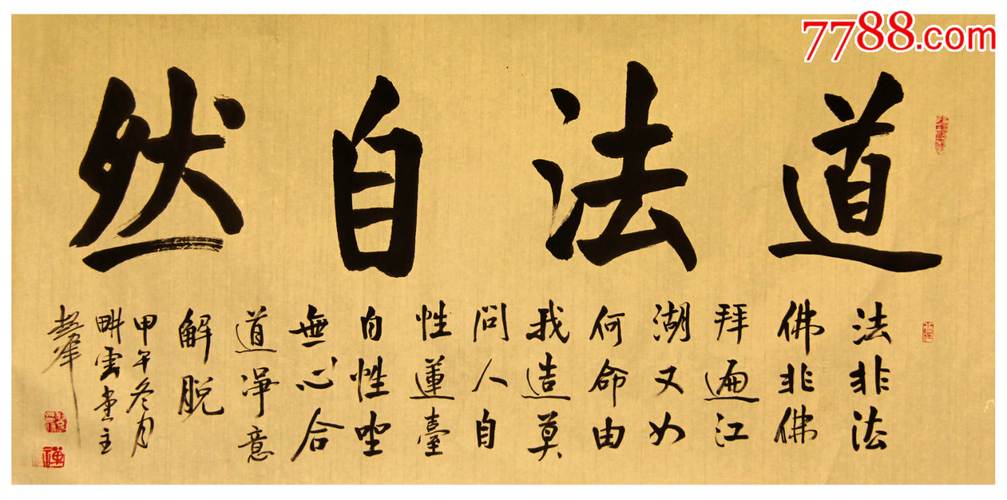 7788.com
道法自然
法非法
佛非佛
拜遍江
湖又如
何命由
我造莫
問人自
性蓮臺
自性坐
無心合
道淨意
解脱
甲午冬月
畊雲堂主